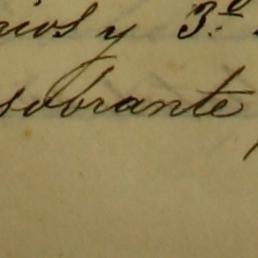 rios y 3.º
sobrante